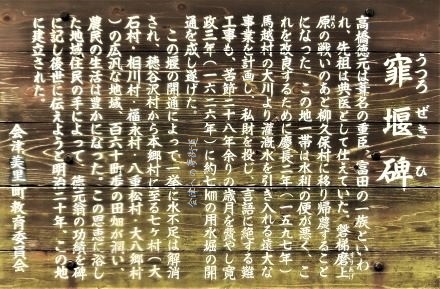 うつろ ぜき ひ
窪堰碑
高橋徳元は葦名の重臣、富田の一族といわ
れ、先祖は典医として仕えていた。磐梯磨上
原の戦いのあと柳久保村に移り帰農すること
になった。この地一帯は水利の便が悪く、こ
れを改良するために慶長二年(一五九七年)
馬越村の大川より灌漑水を引き入れる遠大な
事業を計画し、私財を投じ、言語に絶する難
工事も、苦節二十八年余りの歳月を費やし寛
政三年(一六二六年)に約七㎞の用水堀の開
通を成し遂げた。
この堰の開通によって、一挙に水不足は解消
され、穂谷沢村から本郷村に至る七ヶ村(大
石村・相川村・福永村・八重松村・大八郷村
)の広汎な地域、百六十町歩の田畑が潤い、
農民の生活は豊かになった。この恩恵に浴し
た地域住民の手によって、徳元翁の功績を碑
に記し後世に伝えようと明治二十年、この地
に建立された。
会津美里町教育委員会